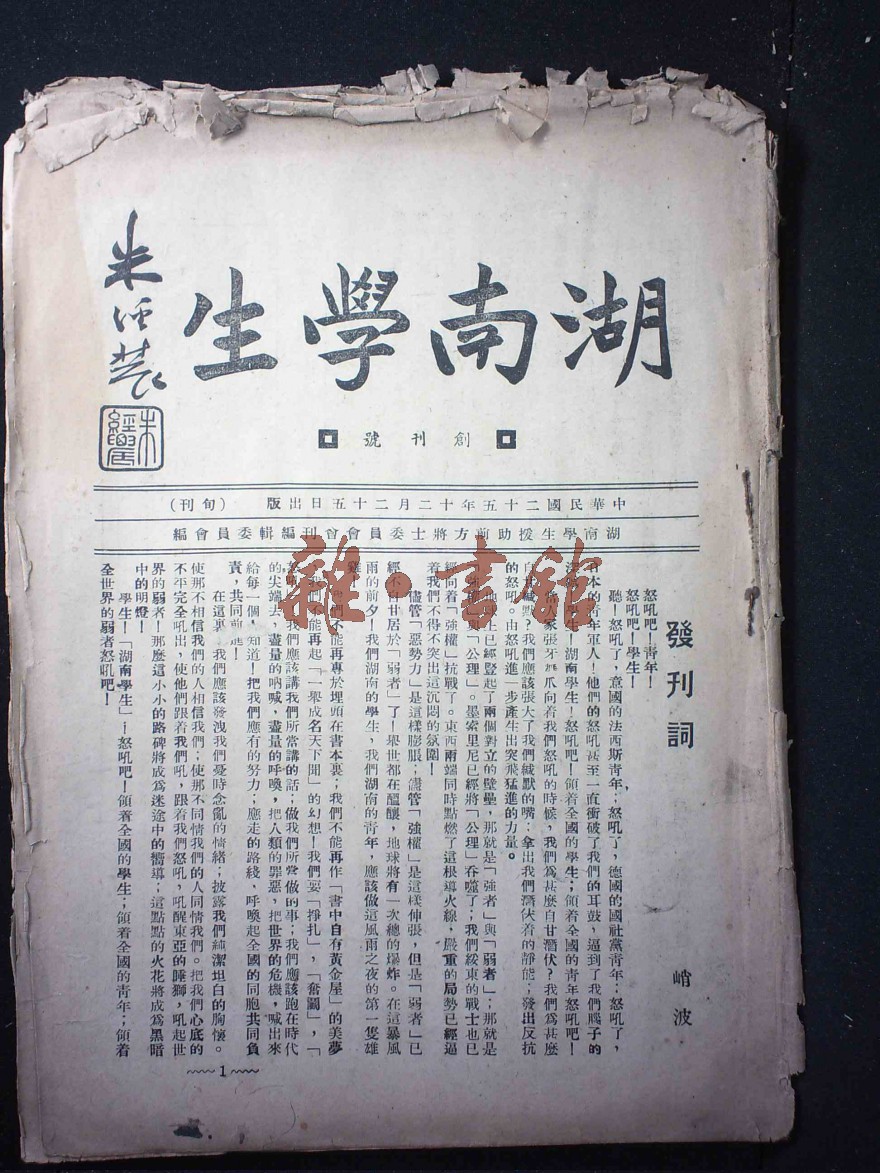 湖南學生
朱經農
朱經農
創刊號
中華民國二十五年十二月二十五日出版 (旬刊)
湖南學生援助前方將士委員會會刊編輯委員會編
雜·書館
發刊詞
峭波
怒吼吧!青年!
怒吼吧!學生!
聽!怒吼了,意國的法西斯青年;怒吼了,德國的國社黨青年;怒吼了,
日本的青年軍人!他們的怒吼甚至一直衝破了我們的耳鼓,逼到了我們腦子的
學生!湖南學生!怒吼吧!領着全國的學生;領着全國的青年怒吼吧!
人家張牙舞爪向着我們怒吼的時候,我們爲甚麽自甘潛伏?我們爲甚麽
自甘緘默?我們應該張大了我們緘默的嘴;拿出我們潛伏着的靜能;發出反抗
的怒吼。由怒吼進一步產生出突飛猛進的力量。
地球上已經豎起了兩個對立的壁壘,那就是「強者」與「弱者」;那就是
「強權」與「公理」。墨索里尼已經將「公理」吞噬了;我們綏東的戰士也已
經向着「強權」抗戰了。東西兩端同時點燃了這根導火線,嚴重的局勢已經逼
着我們不得不突出這沉悶的氛圍!
儘管「惡勢力」是這樣膨脹;儘管「強權」是這樣伸張,但是「弱者」已
經不自甘居於「弱者」了!舉世都在醞釀,地球將有一次總的爆炸。在這暴風
雨的前夕!我們湖南的學生,我們湖南的青年,應該做這風雨之夜的第一隻雄
雞!
我們不能再專於埋頭在書本裏;我們不能再作「書中自有黃金屋」的美夢
我們不能再起「一舉成名天下聞」的幻想!我們要「掙扎」,「奮鬭」,「
我們應該講我們所當講的話;做我們所當做的事;我們應該跑在時代
的尖端去,盡量的吶喊,盡量的呼喚,把人類的罪惡,把世界的危機,喊出來
給每一個,知道!把我們應有的努力;應走的路綫,呼喚起全國的同胞共同負
責,共同前進!
在這裏,我們應該發洩我們憂時念亂的情緒;披露我們純潔坦白的胸懷。
使那不相信我們的人相信我們;使那不同情我們的人同情我們。把我們心底的
不平完全吼出,使他們跟着我們吼,跟着我們怒吼,吼醒東亞的睡獅,吼起世
界的弱者!那麽這小小的路碑將成爲迷途中的嚮導;這點點的火花將成爲黑暗
中的明燈!
學生!「湖南學生」!怒吼吧!領着全國的學生;領着全國的青年;領着
全世界的弱者怒吼吧!
1